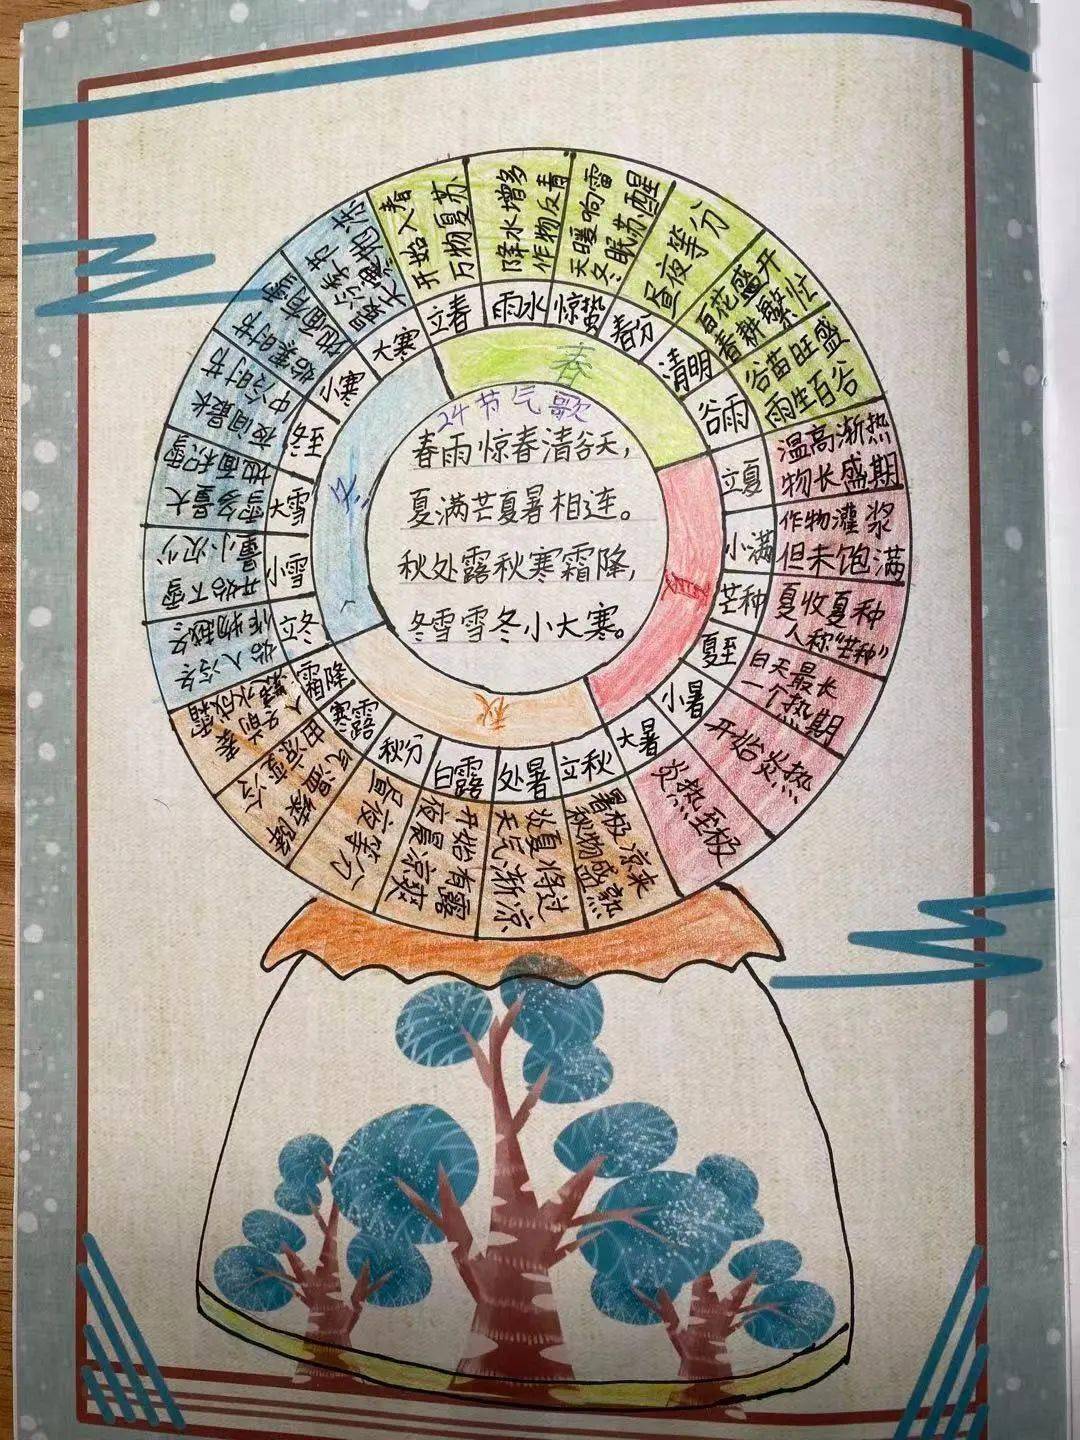 24节气歌
春雨惊春清谷天，
夏满芒夏暑相连。
秋处露秋寒霜降，
冬雪雪冬小大寒。
春
夏
秋
冬
立春
开始入春
万物复苏
雨水
降水增多
作物反青
惊蛰
天暖响雷
冬眠苏醒
春分
昼夜等分
清明
百花盛开
春耕繁忙
谷雨
谷苗旺盛
雨生百谷
立夏
温高渐热
物长盛期
小满
作物灌浆
但未饱满
芒种
夏收夏种
人称“芒种”
夏至
白天最长
一个热期
小暑
开始炎热
大暑
炎热至极
立秋
暑极凉来
秋物盛熟
处暑
炎夏将过
天气渐凉
白露
开始有露
夜晨凉爽
秋分
昼夜等分
寒露
气温骤降
由凉变冷
霜降
立冬
始入冷冬
作物越冬
小雪
开始下雪
量小次少
大雪
雪多量大
地面积雪
冬至
中冷时节
夜间最长
小寒
始寒时节
大寒
最冷季节